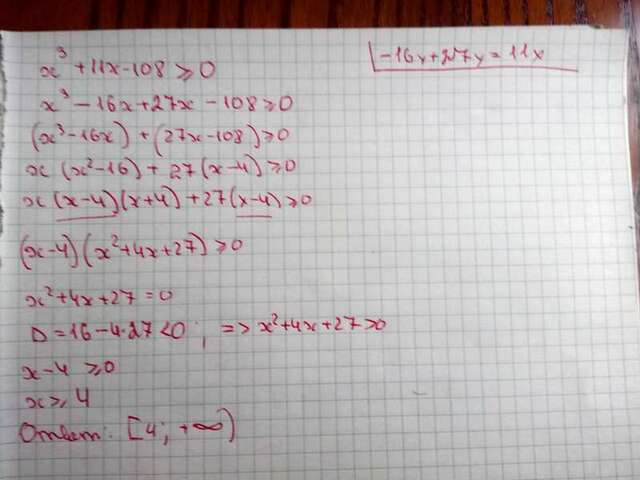 x³ + 11x - 108 ≥ 0
x³ - 16x + 27x - 108 ≥ 0
(x³ - 16x) + (27x - 108) ≥ 0
x (x² - 16) + 27 (x - 4) ≥ 0
x (x - 4)(x + 4) + 27(x - 4) ≥ 0
(x - 4) (x² + 4x + 27) ≥ 0
x² + 4x + 27 = 0
D = 16 - 4·27 < 0 ; => x² + 4x + 27 > 0
x - 4 ≥ 0
x ≥ 4
Ответ: [4; +∞)
-16x + 27x = 11x